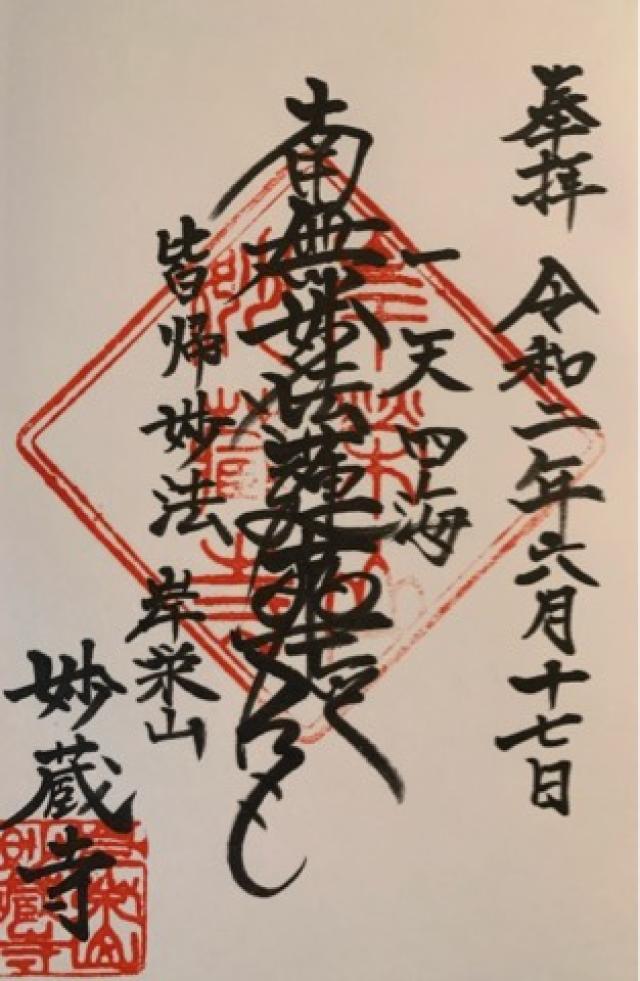 奉拝 令和二年六月十七日
一天四海
南無妙法蓮華経
皆帰妙法 岸栄山
妙蔵寺